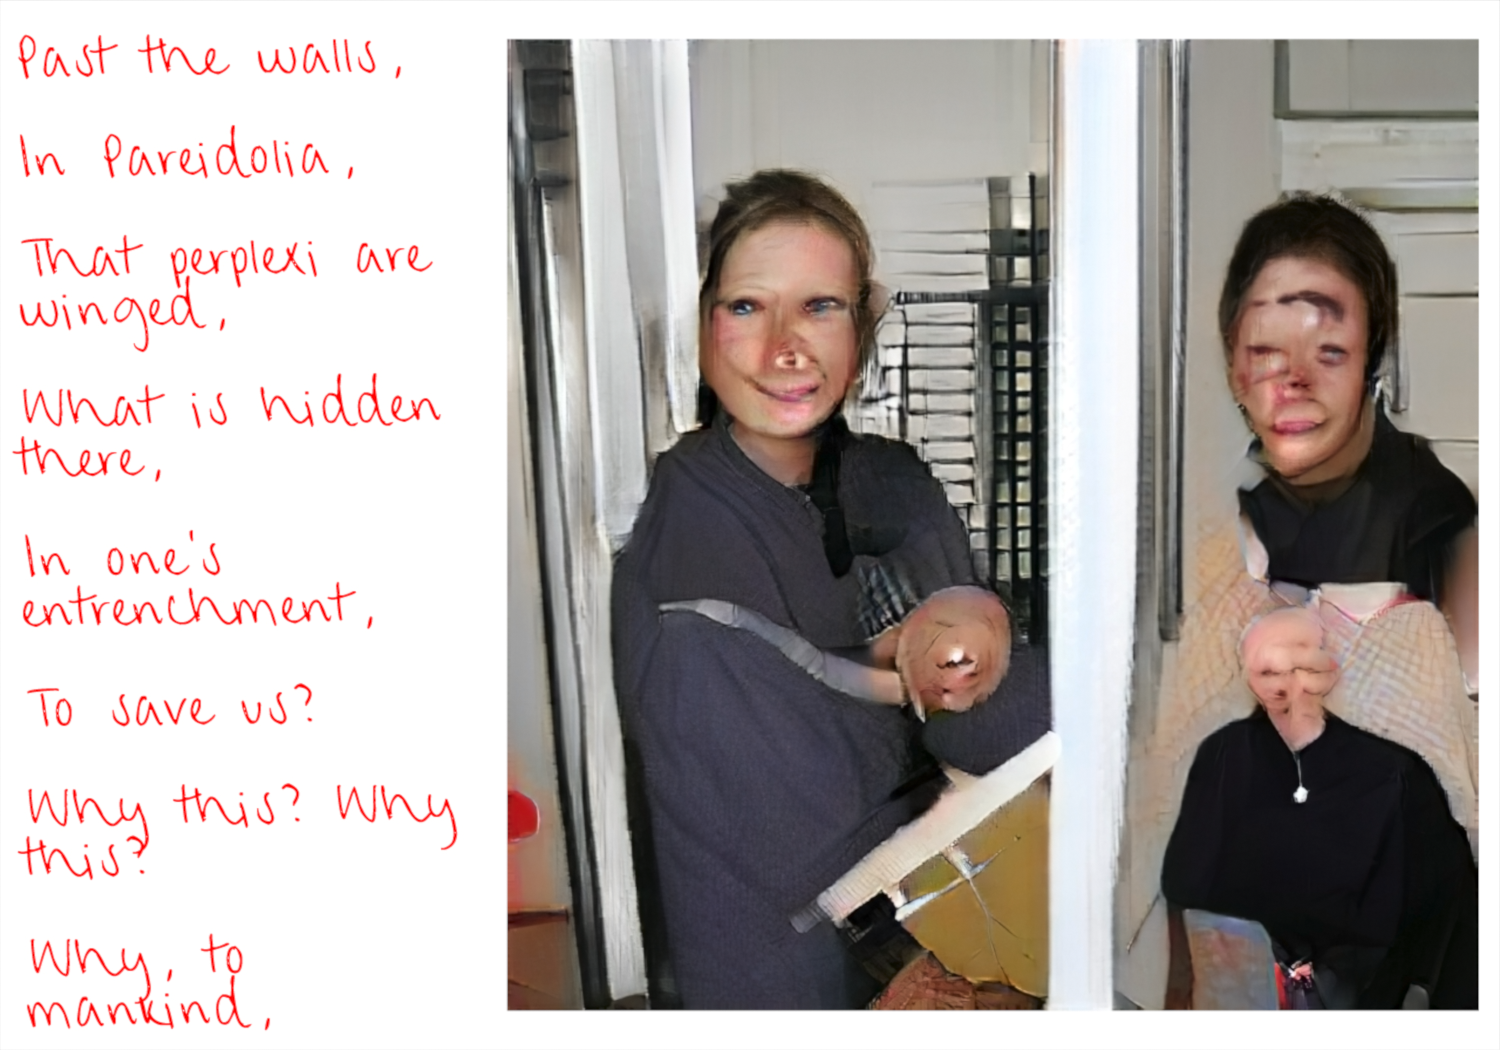 Past the walls,
In Pareidolia,
That perplexi are
winged,
What is hidden
there,
In one's
entrenchment,
To save us?
Why this? Why
this?
Why, to
mankind,